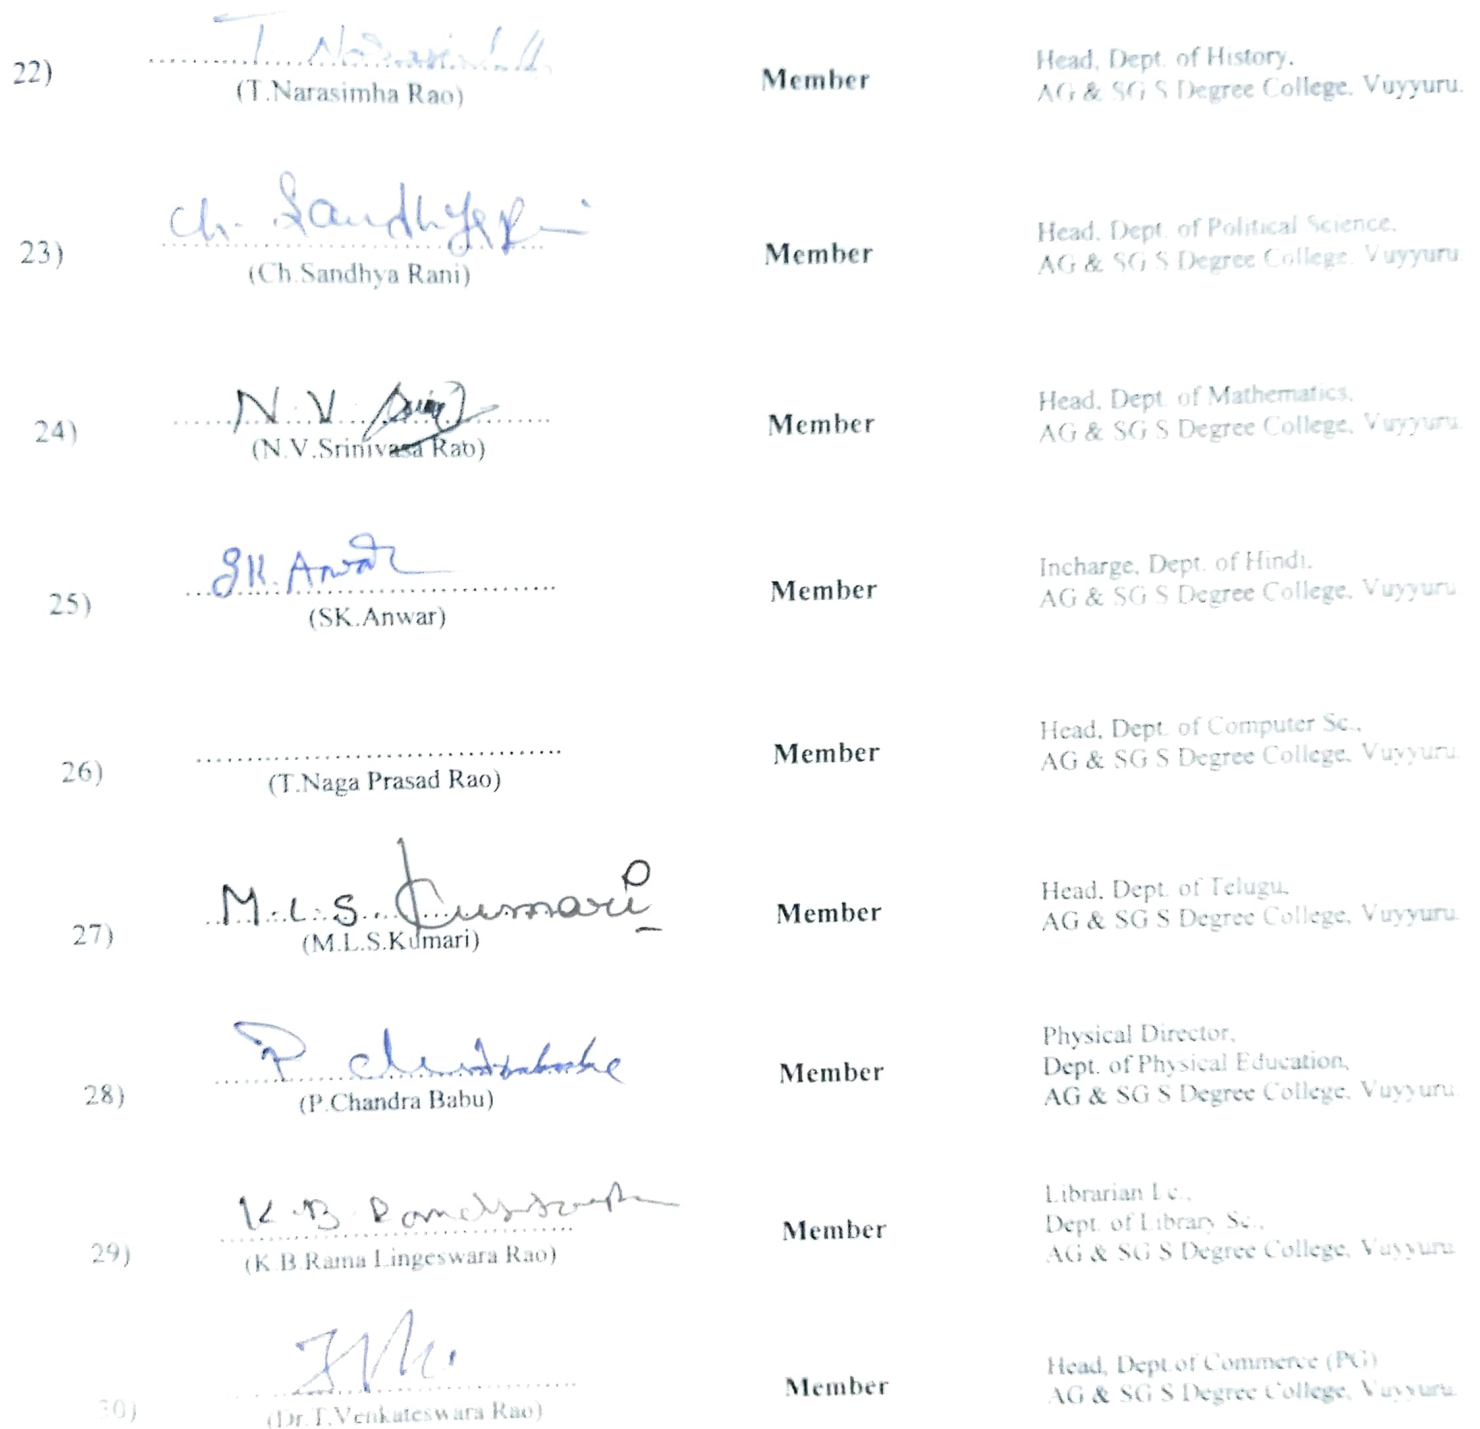 T. Narasimha
22) (T.Narasimha Rao) Member Head, Dept. of History,
AG & SG S Degree College, Vuyyuru.
Ch. Sandhya Rani
23) (Ch.Sandhya Rani) Member Head, Dept. of Political Science,
AG & SG S Degree College, Vuyyuru
N. V.
24) (N.V.Srinivasa Rao) Member Head, Dept. of Mathematics,
AG & SG S Degree College, Vuyyuru.
SK. Anwar
25) (SK.Anwar) Member Incharge, Dept. of Hindi,
AG & SG S Degree College, Vuyyuru
26) (T.Naga Prasad Rao) Member Head, Dept. of Computer Sc.,
AG & SG S Degree College, Vuyyuru.
M.L.S. Kumari
27) (M.L.S.Kumari) Member Head, Dept. of Telugu,
AG & SG S Degree College, Vuyyuru.
P Chandrababu
28) (P.Chandra Babu) Member Physical Director,
Dept. of Physical Education,
AG & SG S Degree College, Vuyyuru.
K.B.
29) (K.B.Rama Lingeswara Rao) Member Librarian I.c.,
Dept. of Library Sc.,
AG & SG S Degree College, Vuyyuru
30) (Dr.T.Venkateswara Rao) Member Head, Dept.of Commerce (PG)
AG & SG S Degree College, Vuyyuru.